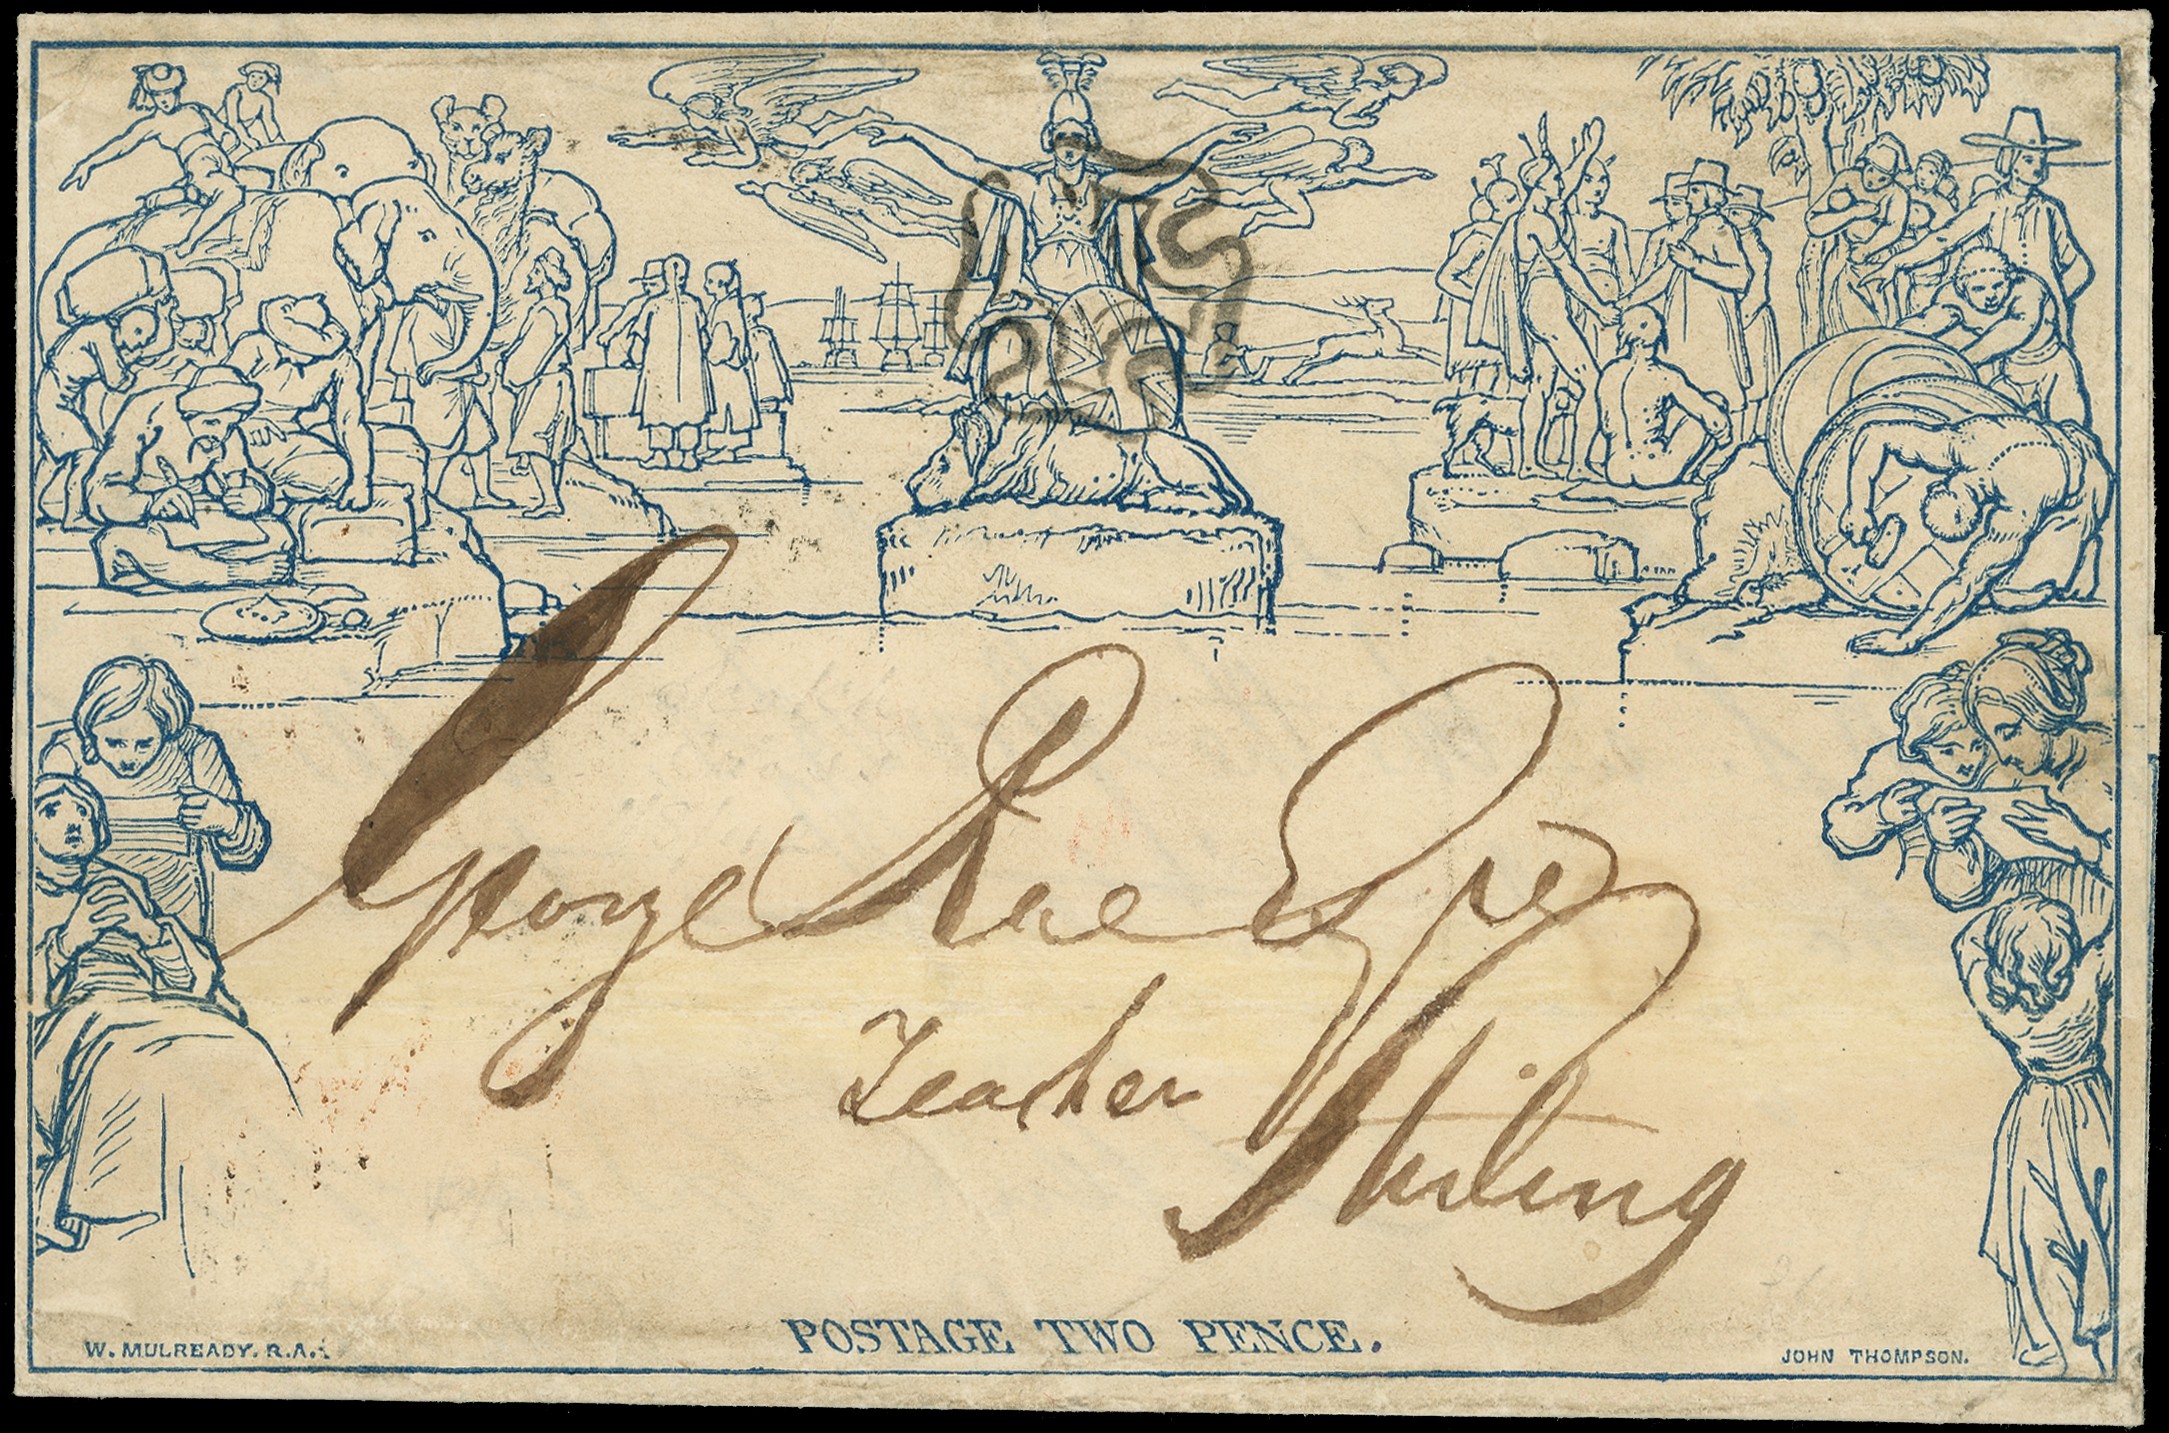 George Rae Esqre
Teacher
Stirling
POSTAGE TWO PENCE.
W. MULREADY. R.A.
JOHN THOMPSON.